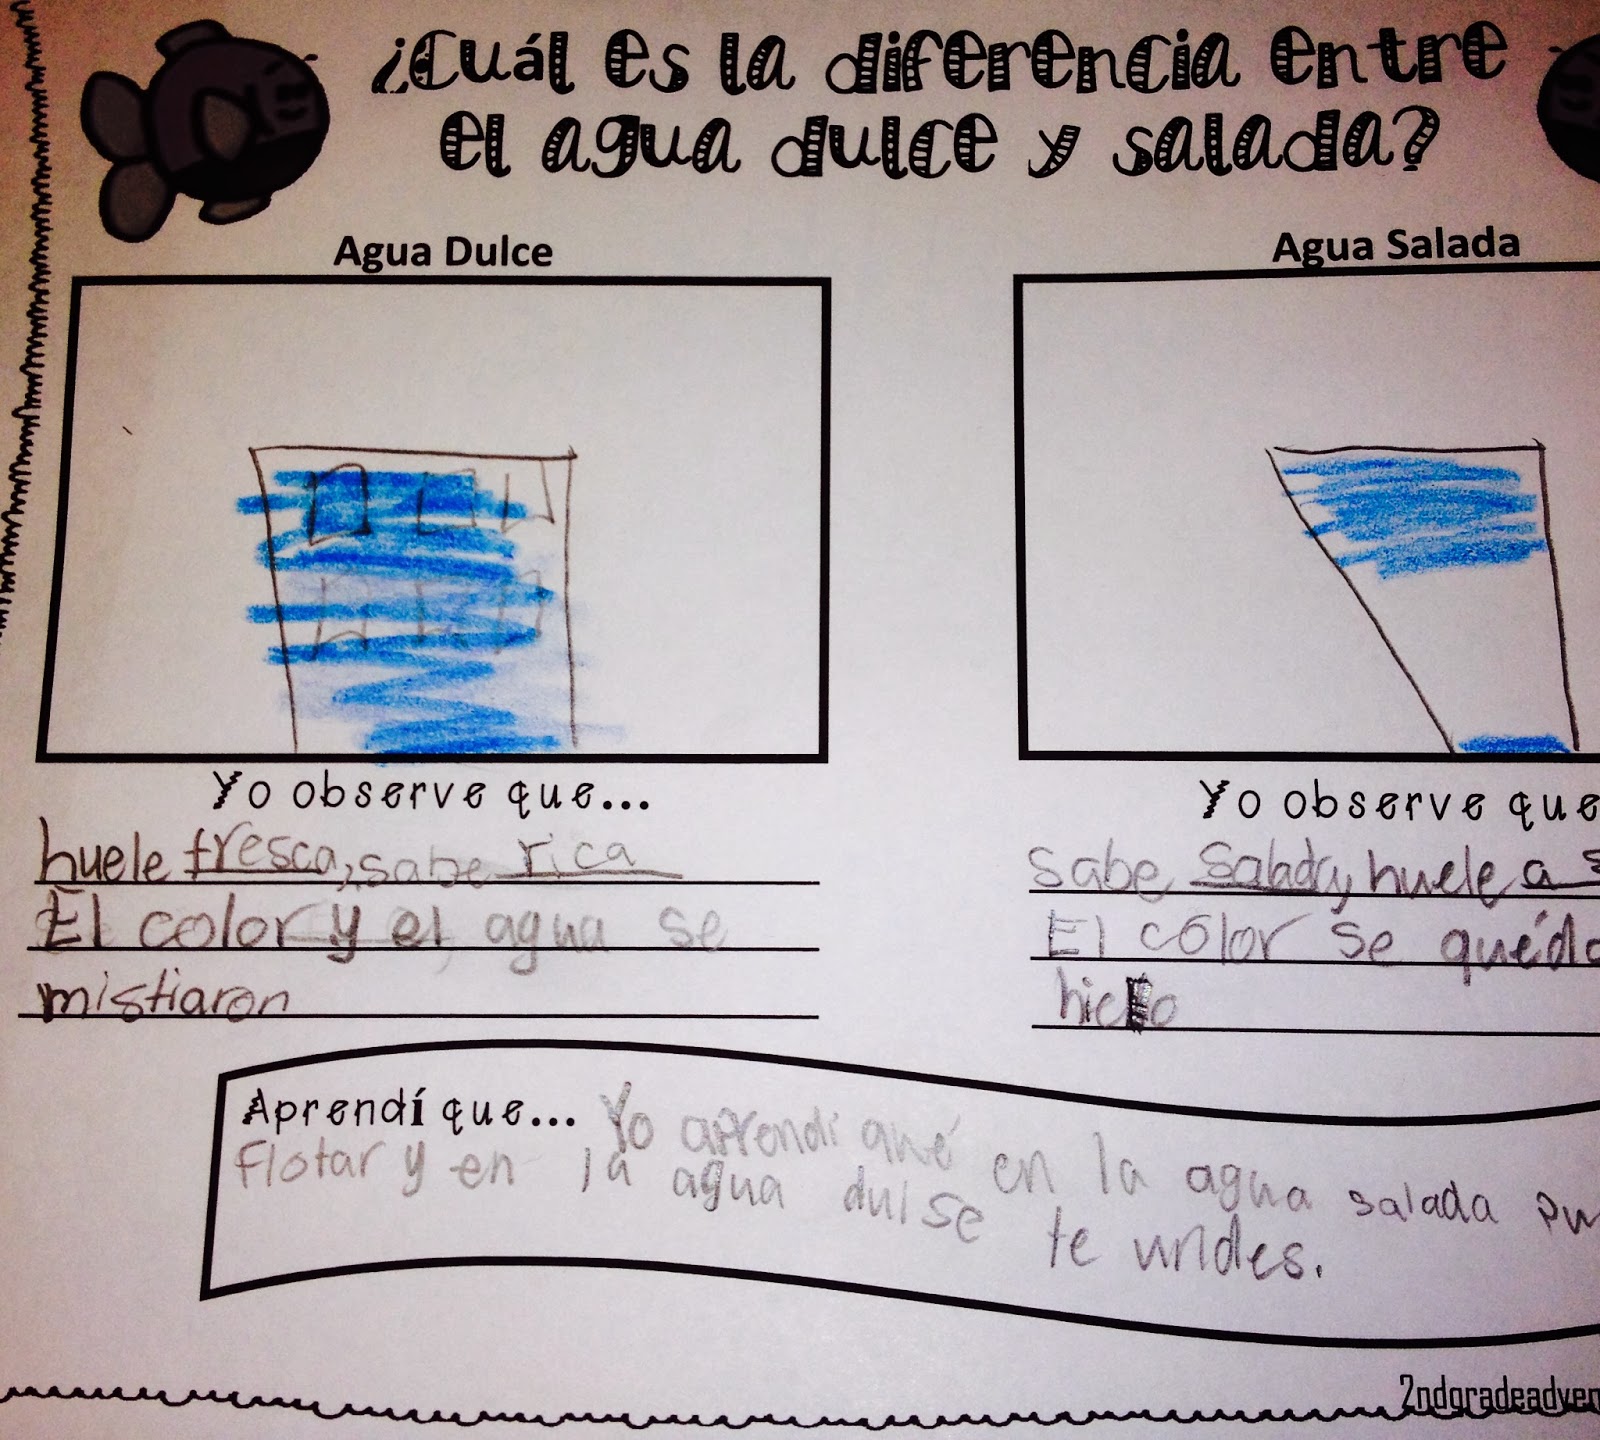 ¿Cuál es la diferencia entre
el agua dulce y salada?
Agua Dulce
Yo observe que...
huele fresca, sabe rica
El color y el agua se
mistiaron
Agua Salada
Yo observe que
Sabe Salada, huele a s
El color se quédo
hielo
Aprendí que... Yo aprendi qué en la agua salada pu
flotar y en la agua dulse te undes.
2ndgradeadven